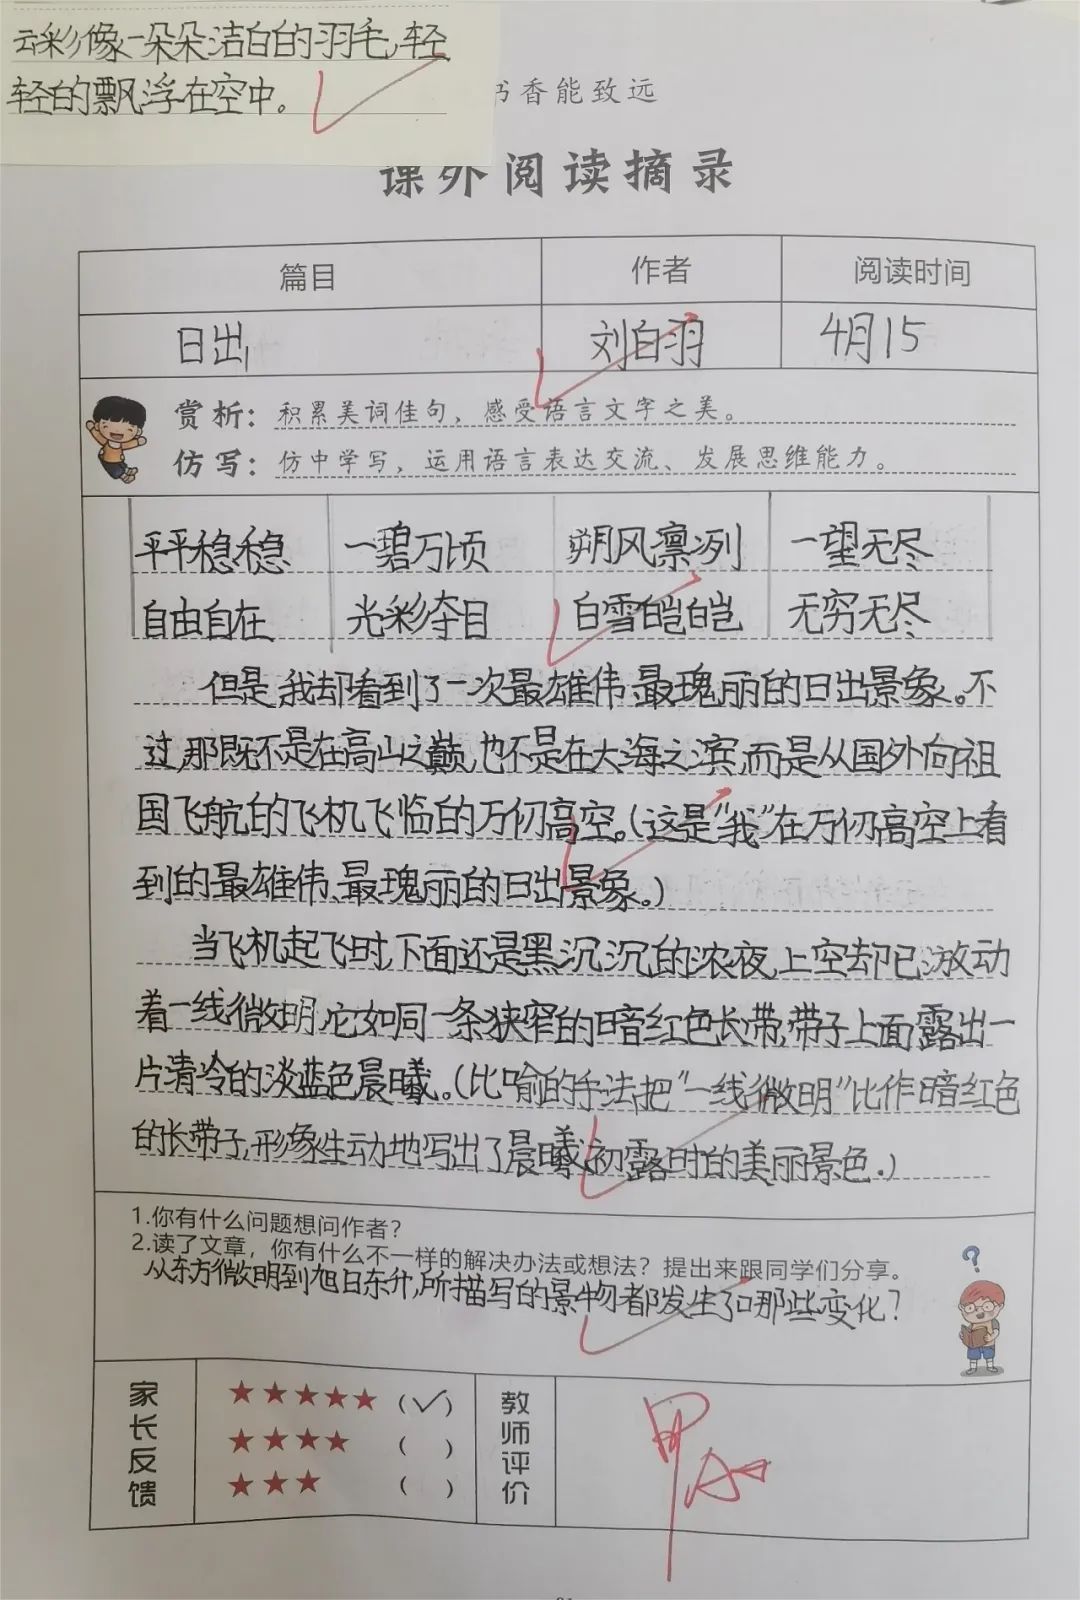 云彩像一朵朵洁白的羽毛,轻
轻的飘浮在空中。
书香能致远
课外阅读摘录
篇目 作者 阅读时间
日出 刘白羽 4月15
赏析：积累美词佳句，感受语言文字之美。
仿写：仿中学写，运用语言表达交流、发展思维能力。
平平稳稳 一碧万顷 朔风凛冽 一望无尽
自由自在 光彩夺目 白雪皑皑 无穷无尽
但是,我却看到了一次最雄伟、最瑰丽的日出景象。不
过,那既不是在高山之巅,也不是在大海之滨,而是从国外向祖
国飞航的飞机飞临的万仞高空。(这是“我”在万仞高空上看
到的最雄伟、最瑰丽的日出景象。)
当飞机起飞时,下面还是黑沉沉的浓夜,上空却已游动
着一线微明,它如同一条狭窄的暗红色长带,带子上面露出一
片清冷的淡蓝色晨曦。(比喻的手法把“一线微明”比作暗红色
的长带子,形象生动地写出了晨曦初露时的美丽景色.)
1.你有什么问题想问作者？
2.读了文章，你有什么不一样的解决办法或想法？提出来跟同学们分享。
从东方微明到旭日东升,所描写的景物都发生了哪些变化?
家长反馈 ★★★★★（✓） 教师评价 甲 A+
★★★★（ ）
★★★（ ）